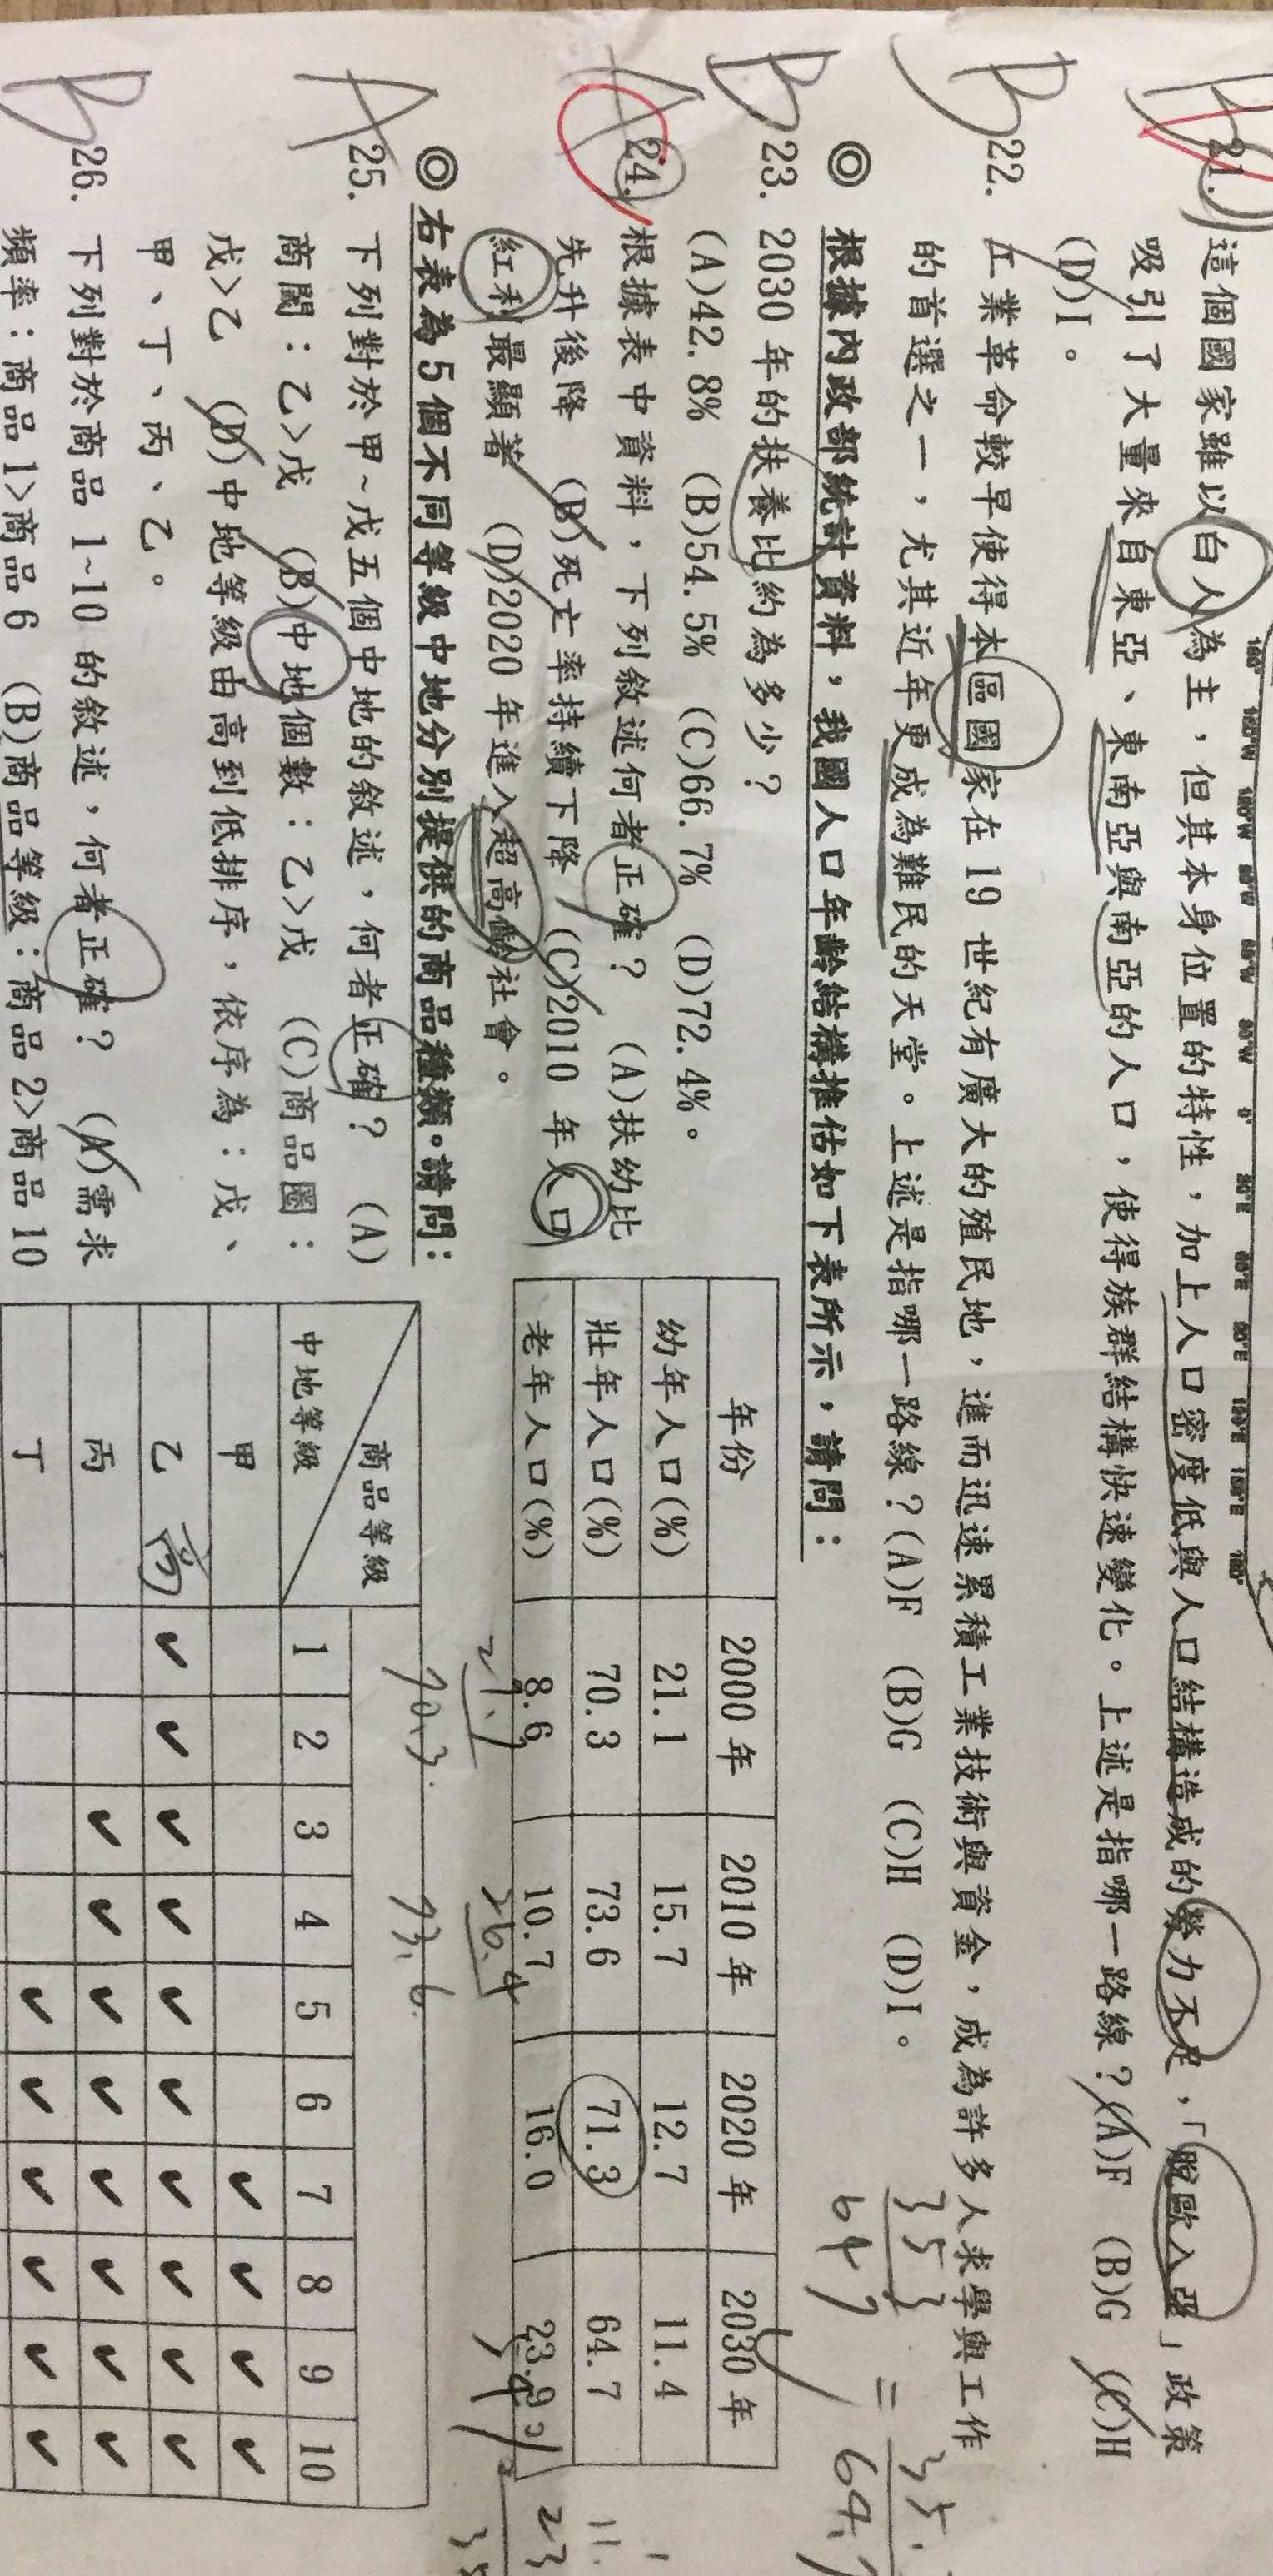 180° 150°W 120°W 90°W 60°W 30°W 0° 30°E 60°E 90°E 120°E 150°E 180°
B 21. 這個國家雖以白人為主，但其本身位置的特性，加上人口密度低與人口結構造成的勞力不足，「脫歐入亞」政策
吸引了大量來自東亞、東南亞與南亞的人口，使得族群結構快速變化。上述是指哪一路線？(A)F (B)G (C)H
(D)I。
B 22. 工業革命較早使得本區國家在19世紀有廣大的殖民地，進而迅速累積工業技術與資金，成為許多人求學與工作
的首選之一，尤其近年更成為難民的天堂。上述是指哪一路線？(A)F (B)G (C)H (D)I。
◎ 根據內政部統計資料，我國人口年齡結構推估如下表所示，請問：
B 23. 2030年的扶養比約為多少？
(A)42.8% (B)54.5% (C)66.7% (D)72.4%。
A 24. 根據表中資料，下列敘述何者正確？ (A)扶幼比
先升後降 (B)死亡率持續下降 (C)2010 年人口
紅利最顯著 (D)2020年進入超高齡社會。
年份 2000年 2010年 2020年 2030年
幼年人口(%) 21.1 15.7 12.7 11.4
壯年人口(%) 70.3 73.6 71.3 64.7
老年人口(%) 8.6 10.7 16.0 23.9
353
647
=
35.
64.
70.3
26.4
73.6
◎ 右表為5個不同等級中地分別提供的商品種類。請問：
A 25. 下列對於甲~戊五個中地的敘述，何者正確？ (A)
商閾：乙>戊 (B)中地個數：乙>戊 (C)商品圈：
戊>乙 (D)中地等級由高到低排序，依序為：戊、
甲、丁、丙、乙。
B 26. 下列對於商品1~10的敘述，何者正確？ (A)需求
頻率：商品1>商品6 (B)商品等級：商品2>商品10
商品等級
中地等級 1 2 3 4 5 6 7 8 9 10
甲 ✓ ✓ ✓ ✓
乙 高 ✓ ✓ ✓ ✓ ✓ ✓ ✓ ✓ ✓ ✓
丙 ✓ ✓ ✓ ✓ ✓ ✓ ✓ ✓
丁 ✓ ✓ ✓ ✓ ✓ ✓